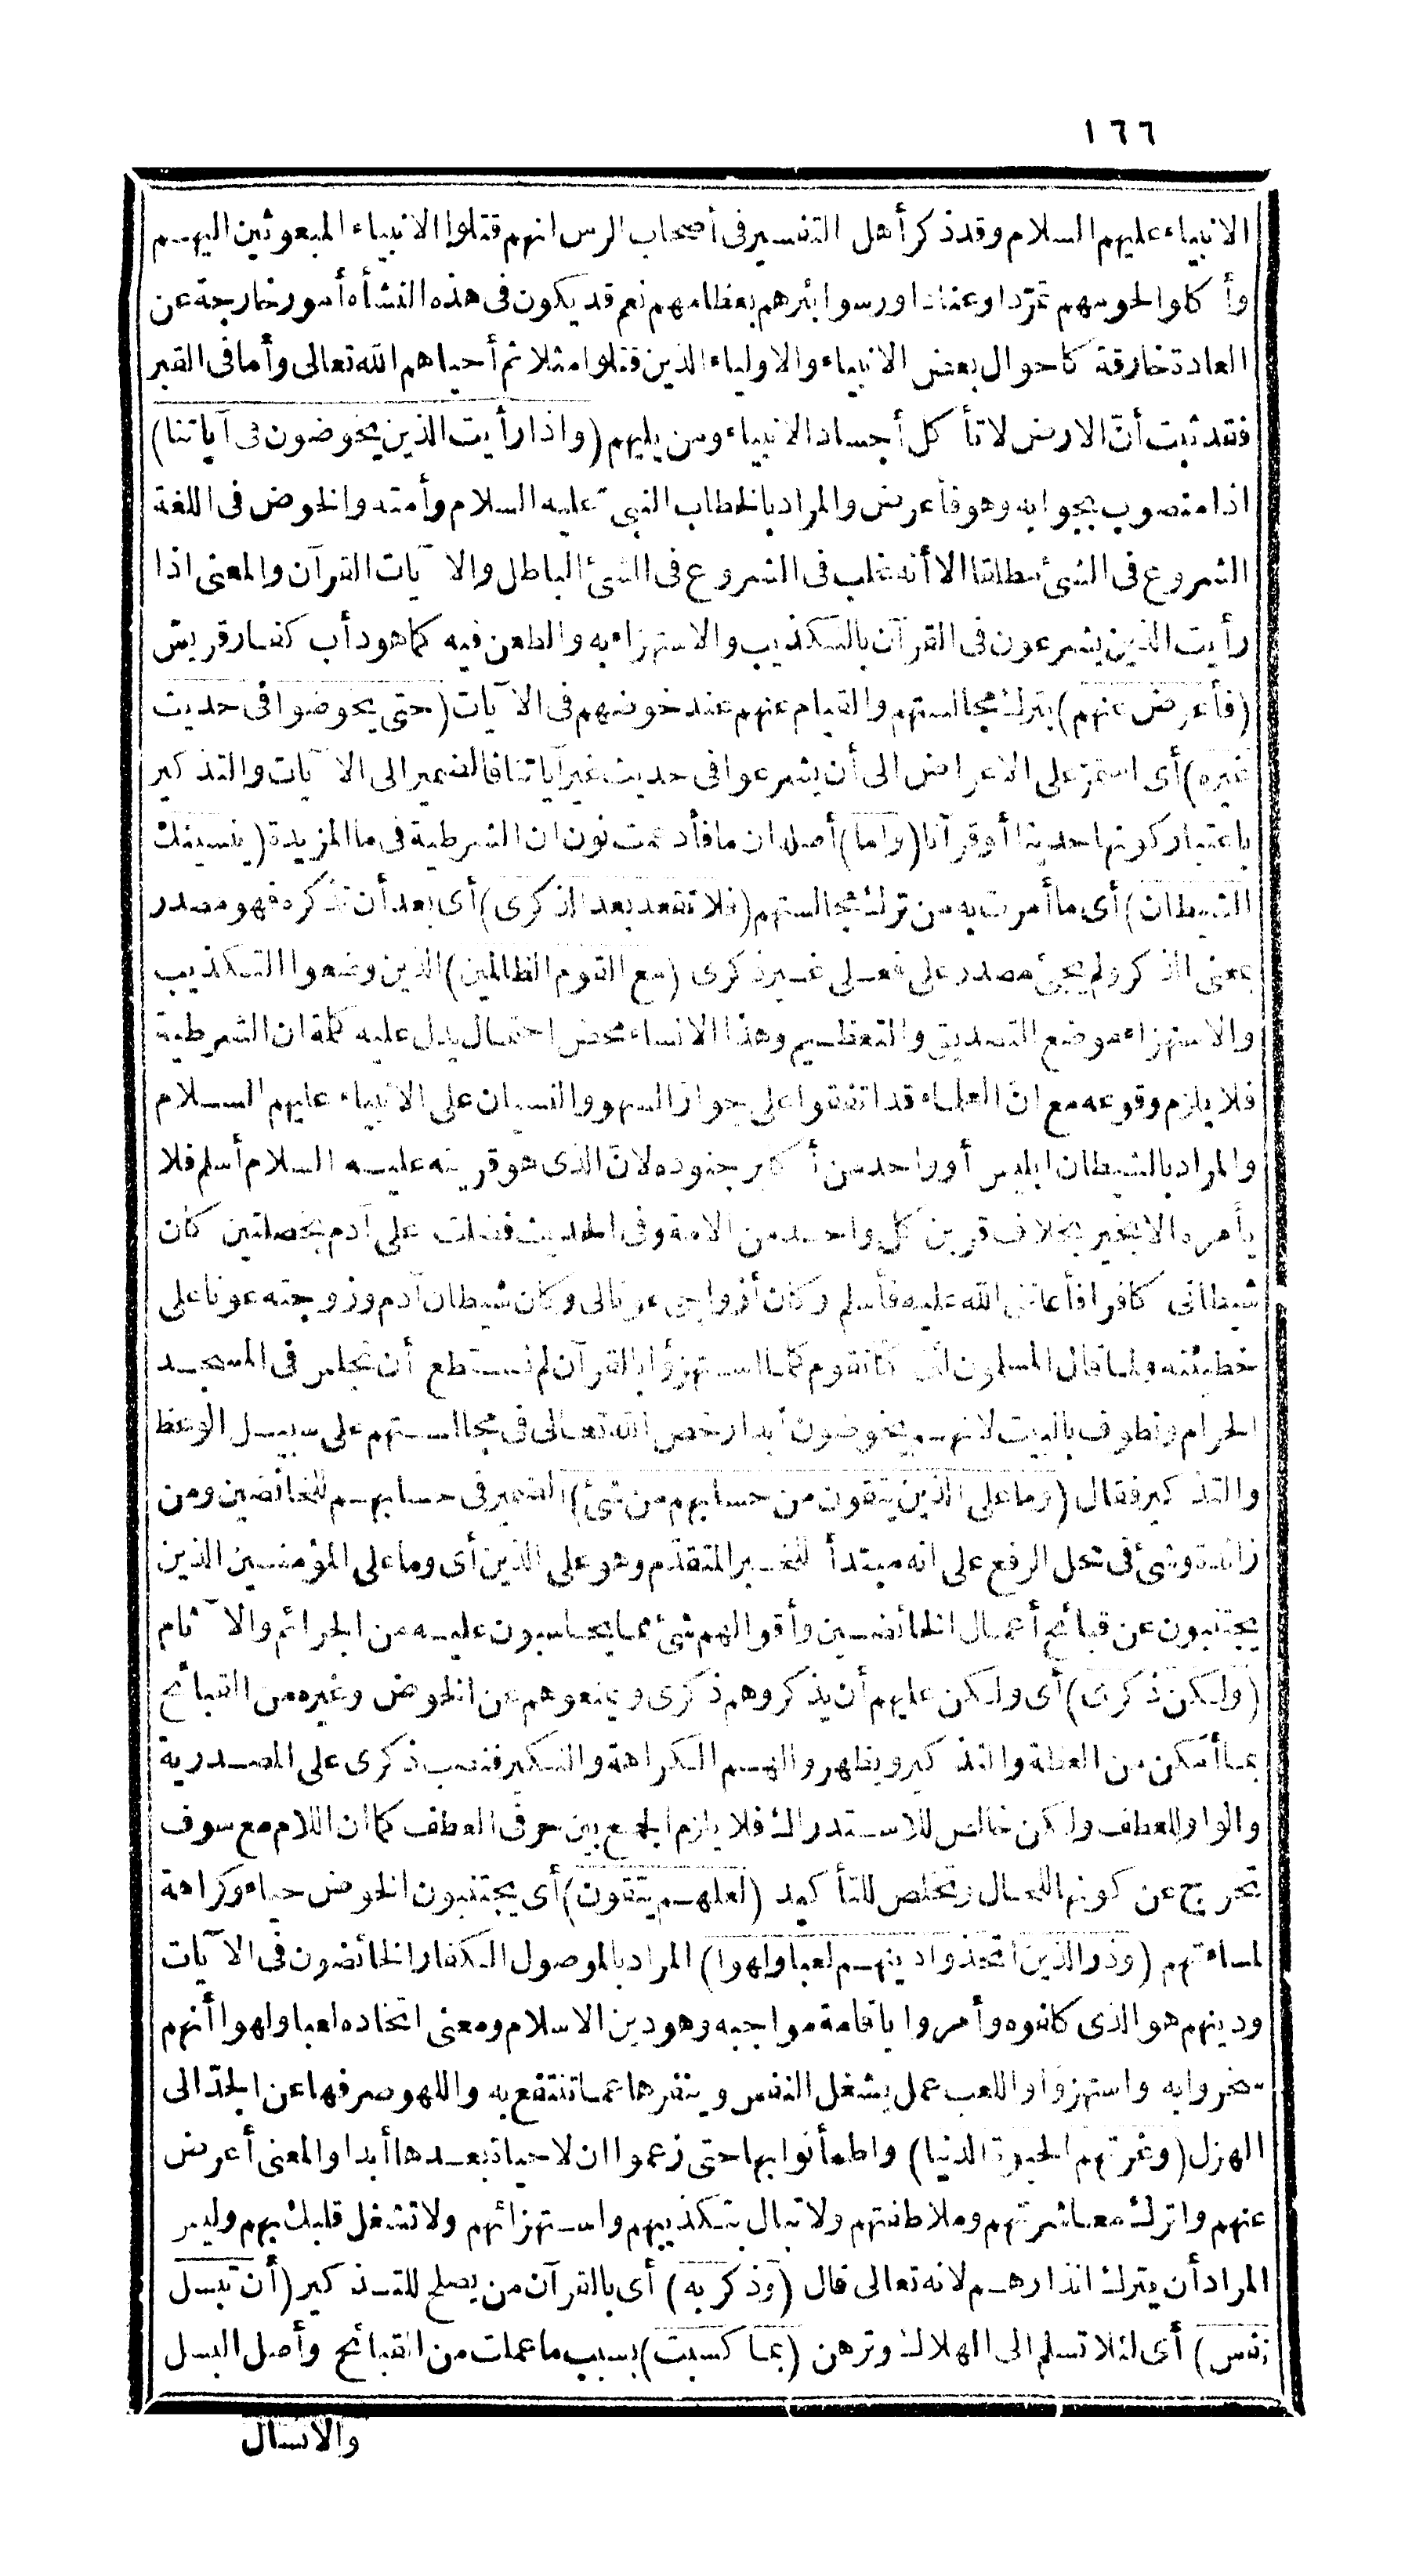 ١٦٦
الانبياء عليهم السلام وقد ذكر أهل التفسير فى أصحاب الرس انهم قتلوا الانبياء المبعوثين اليهم
وأكلوا لحومهم تمرّدا وعنادا ورسوا بئرهم بعظامهم نعم قد يكون فى هذه النشأه أمور خارجة عن
العادة خارقة كاحوال بعض الانبياء والاولياء الذين قتلوا مثلا ثم أحياهم الله تعالى وأما فى القبر
فقد ثبت أنّ الارض لا تأكل أجساد الانبياء ومن يليهم (واذا رأيت الذين يخوضون فى آياتنا)
اذا منصوب بجوابه وهو فأعرض والمراد بالخطاب النبىّ عليه السلام وأمته والخوض فى اللغة
الشروع فى الشئ مطلقا الا أنه غلب فى الشروع فى الشئ الباطل والآيات القرآن والمعنى اذا
رأيت الذين يشرعون فى القرآن بالتكذيب والاستهزاء به والطعن فيه كما هو دأب كفار قريش
(فأعرض عنهم) بترك مجالستهم والقيام عنهم عند خوضهم فى الآيات (حتى يخوضوا فى حديث
غيره) أى استمرّ على الاعراض الى أن يشرعوا فى حديث غير آياتنا فالضمير الى الآيات والتذكير
باعتبار كونها حديثا أو قرآنا (واما) أصله ان ما فأدغمت نون ان الشرطية فى ما المزيدة (ينسينك
الشيطان) أى ما أمرت به من ترك مجالستهم (فلا تقعد بعد الذكرى) أى بعد أن تذكره فهو مصدر
بمعنى الذكر ولم يجئ مصدر على فعلى غير ذكرى (مع القوم الظالمين) الذين وضعوا التكذيب
والاستهزاء موضع التصديق والتعظيم وهذا الانساء محض احتمال يدل عليه كلمة ان الشرطية
فلا يلزم وقوعه مع انّ العلماء قد اتفقوا على جواز السهو والنسيان على الانبياء عليهم السلام
والمراد بالشيطان ابليس أو واحد من أكابر جنوده لانّ الذى هو قرينه عليه السلام أسلم فلا
يأمره الا بخير بخلاف قرين كل واحد من الامة وفى الحديث فضلت على آدم بخصلتين كان
شيطانى كافرا فأعاننى الله عليه فأسلم وكان أزواجى عونا لى وكان شيطان آدم وزوجته عونا على
خطيئته ولما قال المسلمون لئن كنا نقوم كلما استهزؤا بالقرآن لم نستطع أن نجلس فى المسجد
الحرام ونطوف بالبيت لانهم يخوضون أبدا رخص الله تعالى فى مجالستهم على سبيل الوعظ
والتذكير فقال (وما على الذين يتقون من حسابهم من شئ) الضمير فى حسابهم للخائضين ومن
زائدة وشئ فى محل الرفع على انه مبتدأ للخبر المتقدّم وهو على الذين أى وما على المؤمنين الذين
يجتنبون عن قبائح أعمال الخائضين وأقوالهم شئ مما يحاسبون عليه من الجرائم والآثام
(ولكن ذكرى) أى ولكن عليهم أن يذكروهم ذكرى ويمنعوهم عن الخوض وغيره من القبائح
بما أمكن من العظة والتذكير ويظهروا لهم الكراهة والنكير فنصب ذكرى على المصدرية
والواو للعطف ولكن خالص للاستدراك فلا يلزم الجمع بين حرفى العطف كما ان اللام مع سوف
تخرج عن كونها للحال وتخلص للتأكيد (لعلهم يتقون) أى يجتنبون الخوض حياء وكراهة
لمساءتهم (وذر الذين اتخذوا دينهم لعبا ولهوا) المراد بالموصول الكفار الخائضون فى الآيات
ودينهم هو الذى كلفوه وأمروا باقامة مواجبه وهو دين الاسلام ومعنى اتخاذه لعبا ولهوا أنهم
سخروا به واستهزؤا واللعب عمل يشغل النفس وينفرها عما تنتفع به واللهو صرفها عن الجدّ الى
الهزل (وغرتهم الحيوة الدنيا) واطمأنوا بها حتى زعموا ان لا حياة بعدها أبدا والمعنى أعرض
عنهم واترك معاشرتهم وملاطفتهم ولا تبال بتكذيبهم واستهزائهم ولا تشغل قلبك بهم وليس
المراد أن يترك انذارهم لانه تعالى قال (وذكر به) أى بالقرآن من يصلح للتذكير (أن تبسل
نفس) أى لئلا تسلم الى الهلاك وترهن (بما كسبت) بسبب ما عملت من القبائح وأصل البسل
والابسال